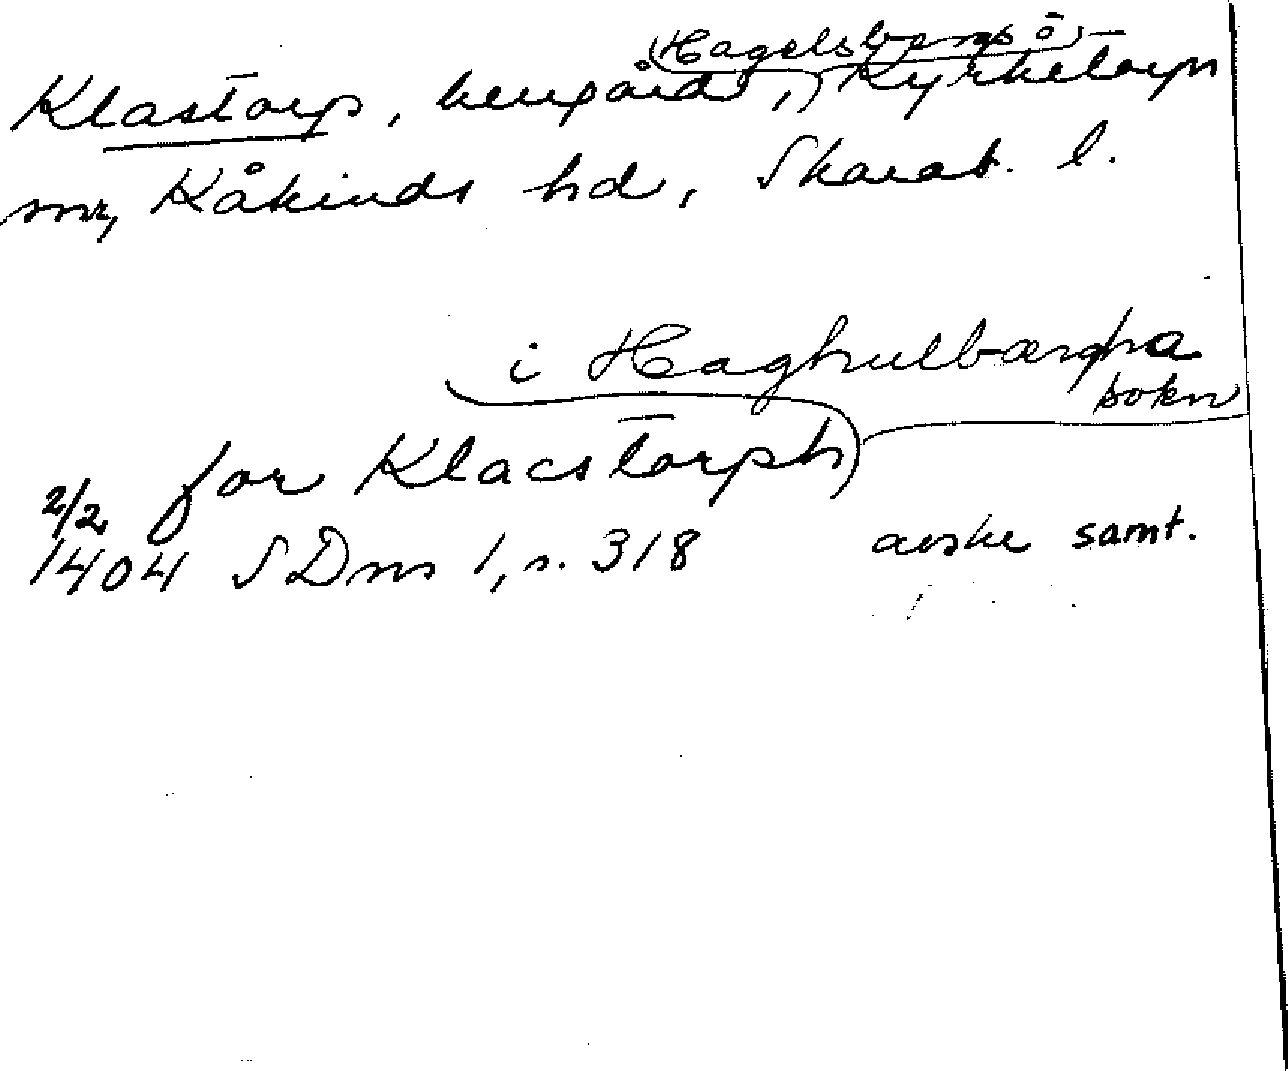 (Hagelsbergs ö)
Klastorp, herrgård, Kyrketorp
sn, Kåkinds hd, Skarab. l.
i Haghulbærgha
sokn
for Klacstorph
2/2
1404 SDns 1, s. 318 avskr samt.